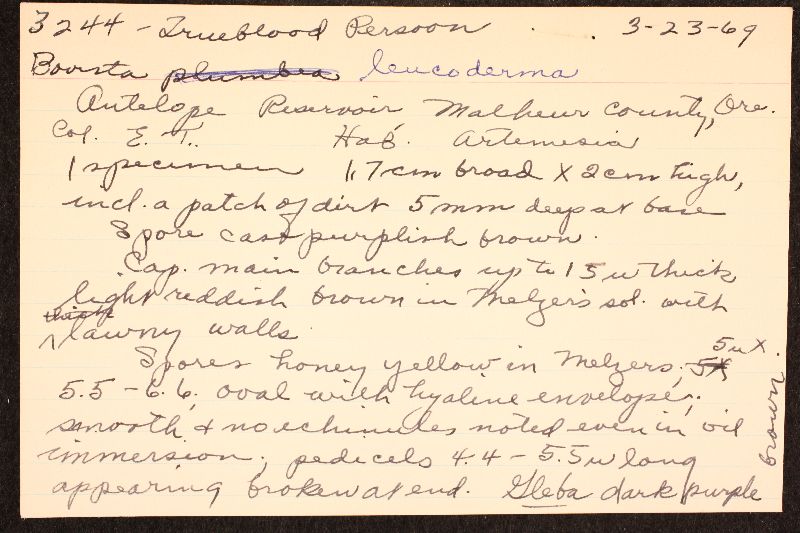 3244 - Trueblood Persoon . . 3-23-69
Bovista plumbea leucoderma
Antelope Reservoir, Malheur County, Ore.
Col. E. T. Hab. Artemesia
1 specimen 1.7 cm broad X 2 cm high,
incl. a patch of dirt 5 mm deep at base
Spore cast purplish brown.
Cap. main branches up to 15 u thick
light reddish brown in Melzer's sol. with
thick tawny walls.
Spores honey yellow in Melzers, 5X 5u X
5.5 - 6.6, oval with hyaline envelope,
smooth & no echinules noted even in oil
immersion; pedicels 4.4 - 5.5 u long
appearing broken at end. Gleba dark purple
brown